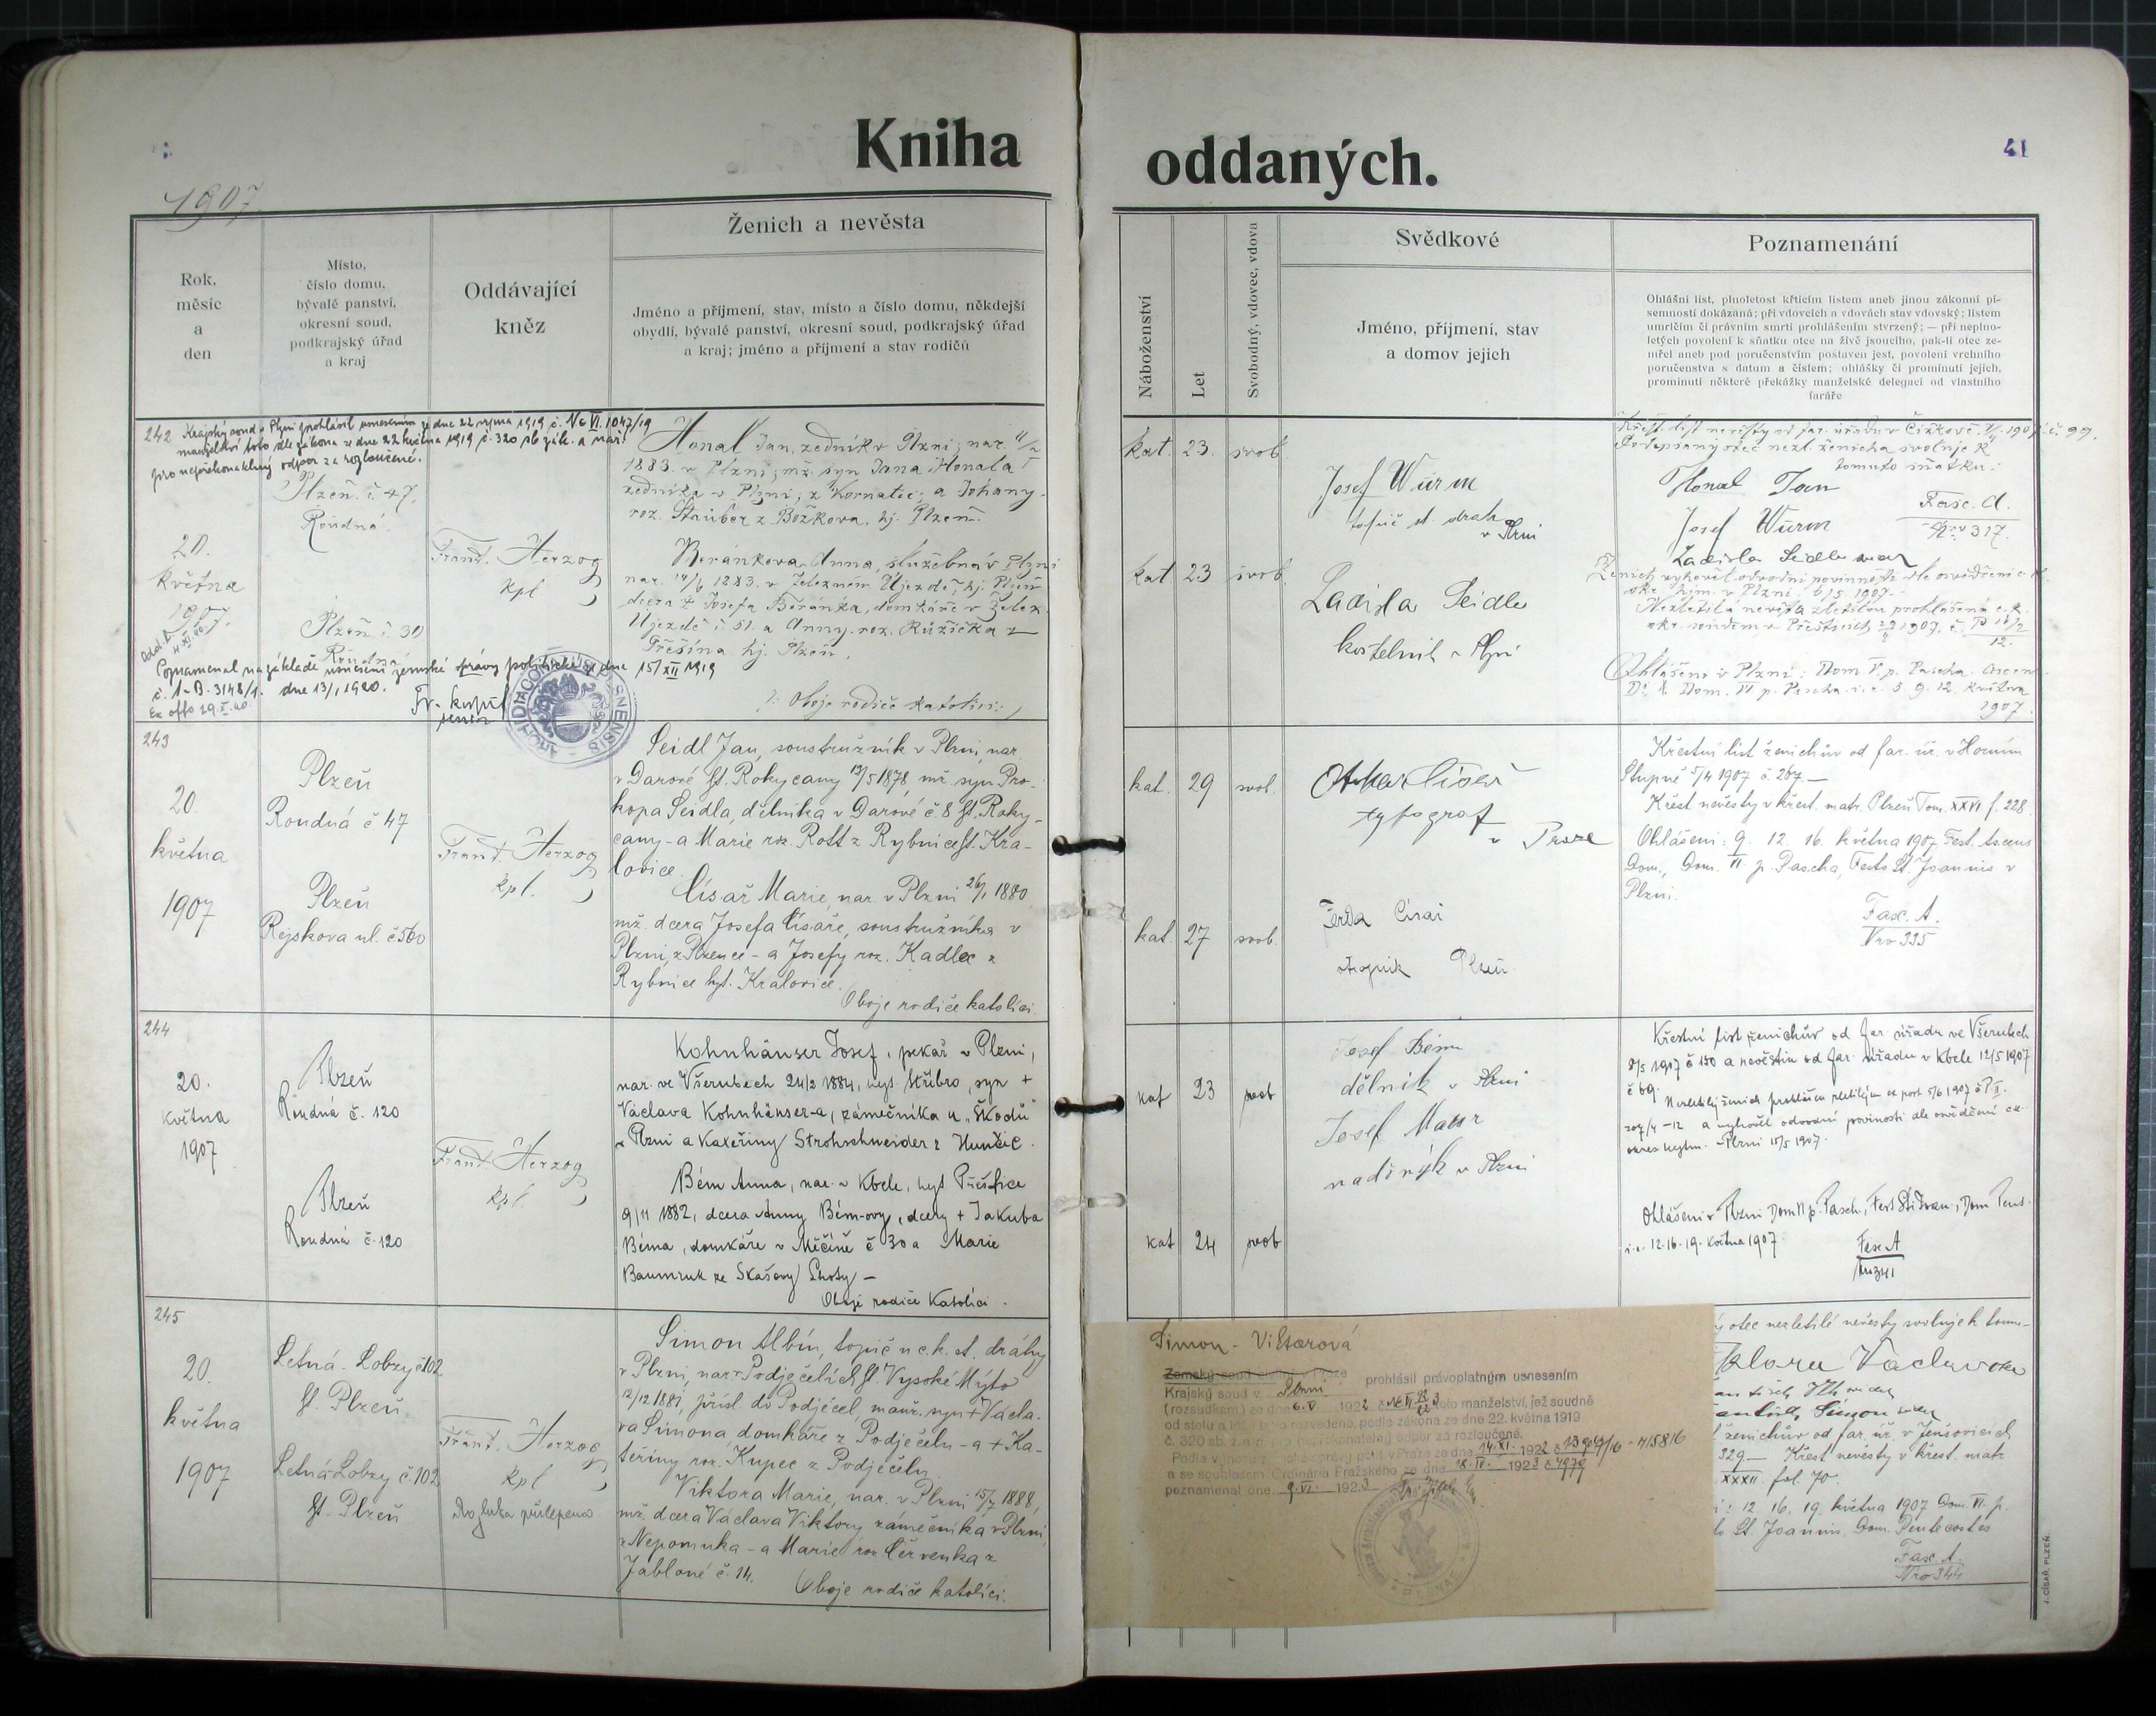 Kniha oddaných.
41
1907
Rok, měsíc a den
Místo, číslo domu, bývalé panství, okresní soud, podkrajský úřad a kraj
Oddávající kněz
Ženich a nevěsta
Jméno a příjmení, stav, místo a číslo domu, někdejší
obydlí, bývalé panství, okresní soud, podkrajský úřad
a kraj; jméno a příjmení a stav rodičů
Náboženství
Let
Svobodný, vdovec, vdova
Svědkové
Jméno, příjmení, stav
a domov jejich
Poznamenání
Ohlášní list, plnoletost křticím listem aneb jinou zákonní pí-
semností dokázaná; při vdovcích a vdovách stav vdovský; listem
umrlčím či právním smrti prohlášením stvrzený; — při neplno-
letých povolení k sňatku otce na živě jsoucího, pak-li otec ze-
mřel aneb pod poručenstvím postaven jest, povolení vrchního
poručenstva s datum a číslem; ohlášky či prominutí jejich,
prominutí některé překážky manželské delegací od vlastního
faráře
242 Krajský soud v Plzni prohlásil usnesením ze dne 22 října 1919 č. Nc VI 1047/19
manželství toto dle zákona ze dne 22 května 1919 č. 320 sb. zák. a nař.
pro nepřekonatelný odpor za rozloučené.
Plzeň č. 47.
Roudná
20.
května
1907.
Plzeň č. 30
Roudná
Frant. Herzog
kpl
Honal Jan, zedník v Plzni, nar.
1883. v Plzni; mž. syn Jana Honala
zedníka v Plzni, z Kornatic, a Johany
roz. Stauber z Božkova, hj. Plzeň.
Beránkova Anna, služebná v Plzni
nar. 14/6 1883. v Železném Újezdě, hj. Plzeň
dcera Josefa Beránka, domkáře v Želez.
Újezdě č. 51. a Anny roz. Růžička z
Třešína hj. Plzeň.
Oboje rodiče katolíci
Poznamenal na základě usnesení zemské správy politické ze dne 15/XII 1919
č. 1-B-3148/1. dne 13/1 1920.
Ex offo
ARCHIDIACON PLSNENSIS
kat. 23. svob.
kat 23 svob.
Josef Wurm
topič st. drah
v Plzni
Ladisla Seidle
kostelník v Plzni
Křest. list nevěsty od far. úřadu v Čížkově
Podepsaný otec nezl. ženicha svoluje k
tomuto sňatku:
Honal Jan
Josef Wurm
Fasc. A.
Nro 317.
Ladisla Seidle
Ženich vyhověl odvodní povinnosti dle osvědčení c. k.
okr. hejtm. v Plzni 6/5 1907.
Nezletilá nevěsta zletilou prohlášená c. k.
okr. soudem v Přešticích
Ohlášeno v Plzni: Dom V. p. Pascha. Ascen
Di. Dom. VI p. Pascha. i. e. 5. 9. 12. května
1907.
243
20.
května
1907
Plzeň
Roudná č 47
Plzeň
Rejskova ul. č 560
Frant. Herzog
kpl.
Seidl Jan, soustružník v Plzni, nar.
v Darové ht. Rokycany 13/5 1878, mž. syn Pro-
kopa Seidla, dělníka v Darové č. 8 ht. Roky-
cany - a Marie roz. Rott z Rybnice ht. Kra-
lovice.
Císař Marie, nar. v Plzni 26/1 1880
mž. dcera Josefa Císaře, soustružníka v
Plzni, z Plzence - a Josefy roz. Kadlec z
Rybnice hyt. Kralovice.
Oboje rodiče katolíci
kat. 29 svob.
kat. 27 svob.
Otokar Císař
typograf
v Praze
Ferda Císař
strojník Plzeň
Křestní list ženichův od far. úř. v Horním
Stupně 5/4 1907 č. 267. —
Křest nevěsty v křest. matr. Plzeň Tom. XXVI f. 228
Ohlášeni: 9. 12. 16. května 1907 Fest. Ascens
Dom., Dom. VI p. Pascha, Festo St. Joannis v
Plzni.
Fasc. A.
Nro 335
244
20.
května
1907
Plzeň
Roudná č. 120
Plzeň
Roudná č. 120
Frant. Herzog
kpl
Kohnhäuser Josef, pekař v Plzni,
nar. ve Všerubech 24/2 1884, hyt. Stříbro, syn +
Václava Kohnhäuser-a, zámečníka u „Škodů"
v Plzni a Kateřiny Strohschneider z Hunčic.
Bém Anna, nar. v Kbele, hyt Přeštice
9/11 1882, dcera Anny Bém-ovy, dcery + Jakuba
Béma, domkáře v Měčíně č 30 a Marie
Baumruk ze Skašovy Lhoty —
Oboji rodiče Katolíci.
kat 23 svob
kat 24 svob
Josef Bém
dělník v Plzni
Josef Mausr
nadiník v Plzni
Křestní list ženichův od far. úřadu ve Všerubech
8/5 1907 č 130 a nevěstin od far. úřadu v Kbele 12/5 1907
č 69.
Nezletilý ženich prohlášen zletilým
a vyhověl odvodní povinosti dle osvědčení ck
okres hejtm. Plzni 15/5 1907.
Ohlášeni v Plzni Dom VI p. Pasch., Fest Sti Ivan., Dom Pent.
i. e. 12. 16. 19. května 1907.
Fasc A
Nro 341
245
20.
května
1907
Letná - Lobzy č 102
ht. Plzeň
Letná - Lobzy č. 102
ht. Plzeň
Frant. Herzog
kpl
Rozluka přilepena
Simon Albín, topič u c. k. st. dráhy
v Plzni, nar. v Podječelích ht. Vysoké Mýto
12/12 1881, přísl. do Podječel, manž. syn + Václa-
va Simona, domkáře z Podječelu - a + Ka-
teřiny roz. Kupec z Podječelu.
Viktora Marie, nar. v Plzni 15/7 1888,
mž. dcera Václava Viktory zámečníka v Plzni,
z Nepomuka - a Marie roz. Červenka z
Jablonné č. 14.
Oboje rodiče katolíci.
Simon - Viktorová
Zemský soud civilní v Praze
Krajský soud v Plzni prohlásil právoplatným usnesením
(rozsudkem) ze dne 6. V. 1922 toto manželství, jež soudně
od stolu a lože bylo rozvedeno, podle zákona ze dne 22. května 1919
č. 320 sb. z. a n. pro nepřekonatelný odpor za rozloučené.
Podle výnosu zemské správy polit. v Praze ze dne 14. XI. 1922
a se souhlasem Ordinariá Pražského ze dne 1923 č. 4979
poznamenal dne 9. VI. 1923
otec nezletilé nevěsty svoluje k tomu-
Václav
Simon
ženichův od far. úř. v Jenšovicích
329 — Křest nevěsty v křest. matr.
XXXII fol. 70.
12. 16. 19. května 1907 Dom. VI. p.
St. Joannis, Dom. Pentecostes
Fasc. A.
Nro 344
J. CÍSAŘ, PLZEŇ.